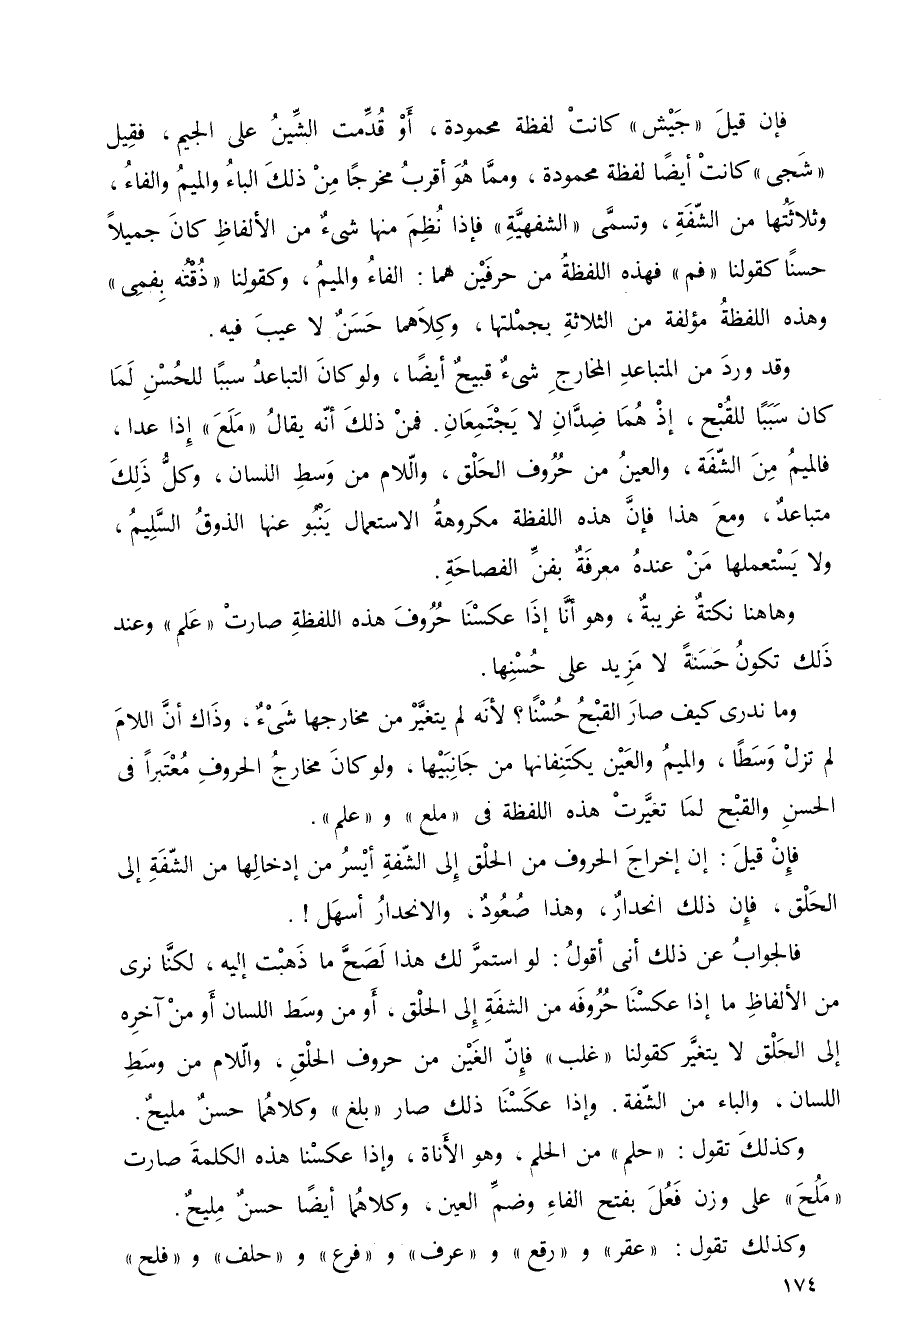 فإن قيلَ «جَيْش» كانتْ لفظة محمودة ، أَوْ قُدِّمت الشِّينُ على الجيم ، فقِيل
«شَجى» كانتْ أيضًا لفظة محمودة ، وممَّا هُوَ أقربُ مخرجًا مِنْ ذلكَ الباءُ والميمُ والفاءُ ،
وثلاثَتُها من الشّفَةِ ، وتسمَّى «الشفهيَّةِ» فإذا نُظِمَ منها شىءٌ من الألفاظِ كانَ جميلاً
حسنًا كقولنا «فم» فهذه اللفظةُ من حرفَيْن هما : الفاءُ والميمُ ، وكقولِنا «ذُقْتُه بِفمِى»
وهذه اللفظةُ مؤلفة من الثلاثةِ بجمْلتها ، وكِلاَهما حَسَنٌ لا عيبَ فيه .
وقد وردَ من المتباعدِ المخارجِ شىءٌ قبيحٌ أيضًا ، ولو كانَ التباعدُ سببًا للحُسْنِ لَمَا
كان سَبَبًا للقُبْح ، إذْ هُمَا ضِدَّانِ لا يَجْتَمِعَانِ . فمنْ ذلكَ أنّه يقالُ «مَلَعَ» إذا عدا ،
فالميمُ مِنَ الشّفَة ، والعينُ من حُرُوف الحَلْق ، والّلام من وَسطِ اللسان ، وكلُّ ذَلِكَ
متباعدٌ ، ومعَ هذا فإنَّ هذه اللفظة مكروهةُ الاستعمال يَنْبُو عنها الذوقُ السَّلِيمُ ،
ولا يَسْتعملها مَنْ عندهُ معرفَةٌ بفنِّ الفصاحَةِ .
وهاهنا نكتةٌ غريبةٌ ، وهو أنَّا إذَا عكسْنَا حُرُوفَ هذه اللفظةِ صارتْ «عَلم» وعند
ذَلك تكونُ حَسَنةً لا مَزِيد على حُسْنِها .
وما ندرى كيف صارَ القبْحُ حُسْنًا ؟ لأنَه لم يتغيَّرْ من مخارجها شَىْءٌ ، وذَاك أنَّ اللامَ
لم تزلْ وَسَطًا ، والميمُ والعَيْن يكتَنِفانها من جَانِبَيْها ، ولو كانَ مخارجُ الحروفِ مُعْتَبراً فى
الحسنِ والقبْح لمَا تغيَّرتْ هذه اللفظة فى «ملع» و «علم» .
فإِنْ قيلَ : إن إخراجَ الحروف من الحلْق إِلى الشّفةِ أيْسرُ من إدخالِها من الشّفَةِ إلى
الحَلْق ، فإِن ذلك انحدارٌ ، وهذا صُعُودٌ ، والانحدارُ أسهَل ! .
فالجوابُ عن ذلك أنى أقولُ : لو استمرَّ لك هذا لَصَحَّ ما ذَهبْت إليه ، لكنَّا نرى
من الألفاظِ ما إذا عكسْنَا حُرُوفَه من الشفَةِ إِلى الحلْق ، أَو من وسَط اللسان أَو منْ آخرِه
إلى الحَلْق لا يتغيَّر كقولنا «غلب» فإنّ الغَيْن من حروف الحلْقِ ، والّلام من وسَطِ
اللسان ، والباء من الشّفة . وإذا عكَسْنَا ذلك صار «بلغ» وكلاهُما حسنٌ مليحٌ .
وكذلكَ تقول : «حلم» من الحلم ، وهو الأَناة ، وإذا عكسْنا هذه الكلمةَ صارت
«مَلُحَ» على وزن فَعُلَ بفتح الفاءِ وضمِّ العين ، وكلاهُما أيضًا حسنٌ مِليحٌ .
وكذلك تقول : «عقر» و «رقع» و «عرف» و «فرع» و «حلف» و «فلح»
١٧٤